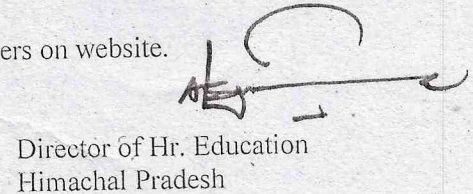 ers on website.
Director of Hr. Education
Himachal Pradesh